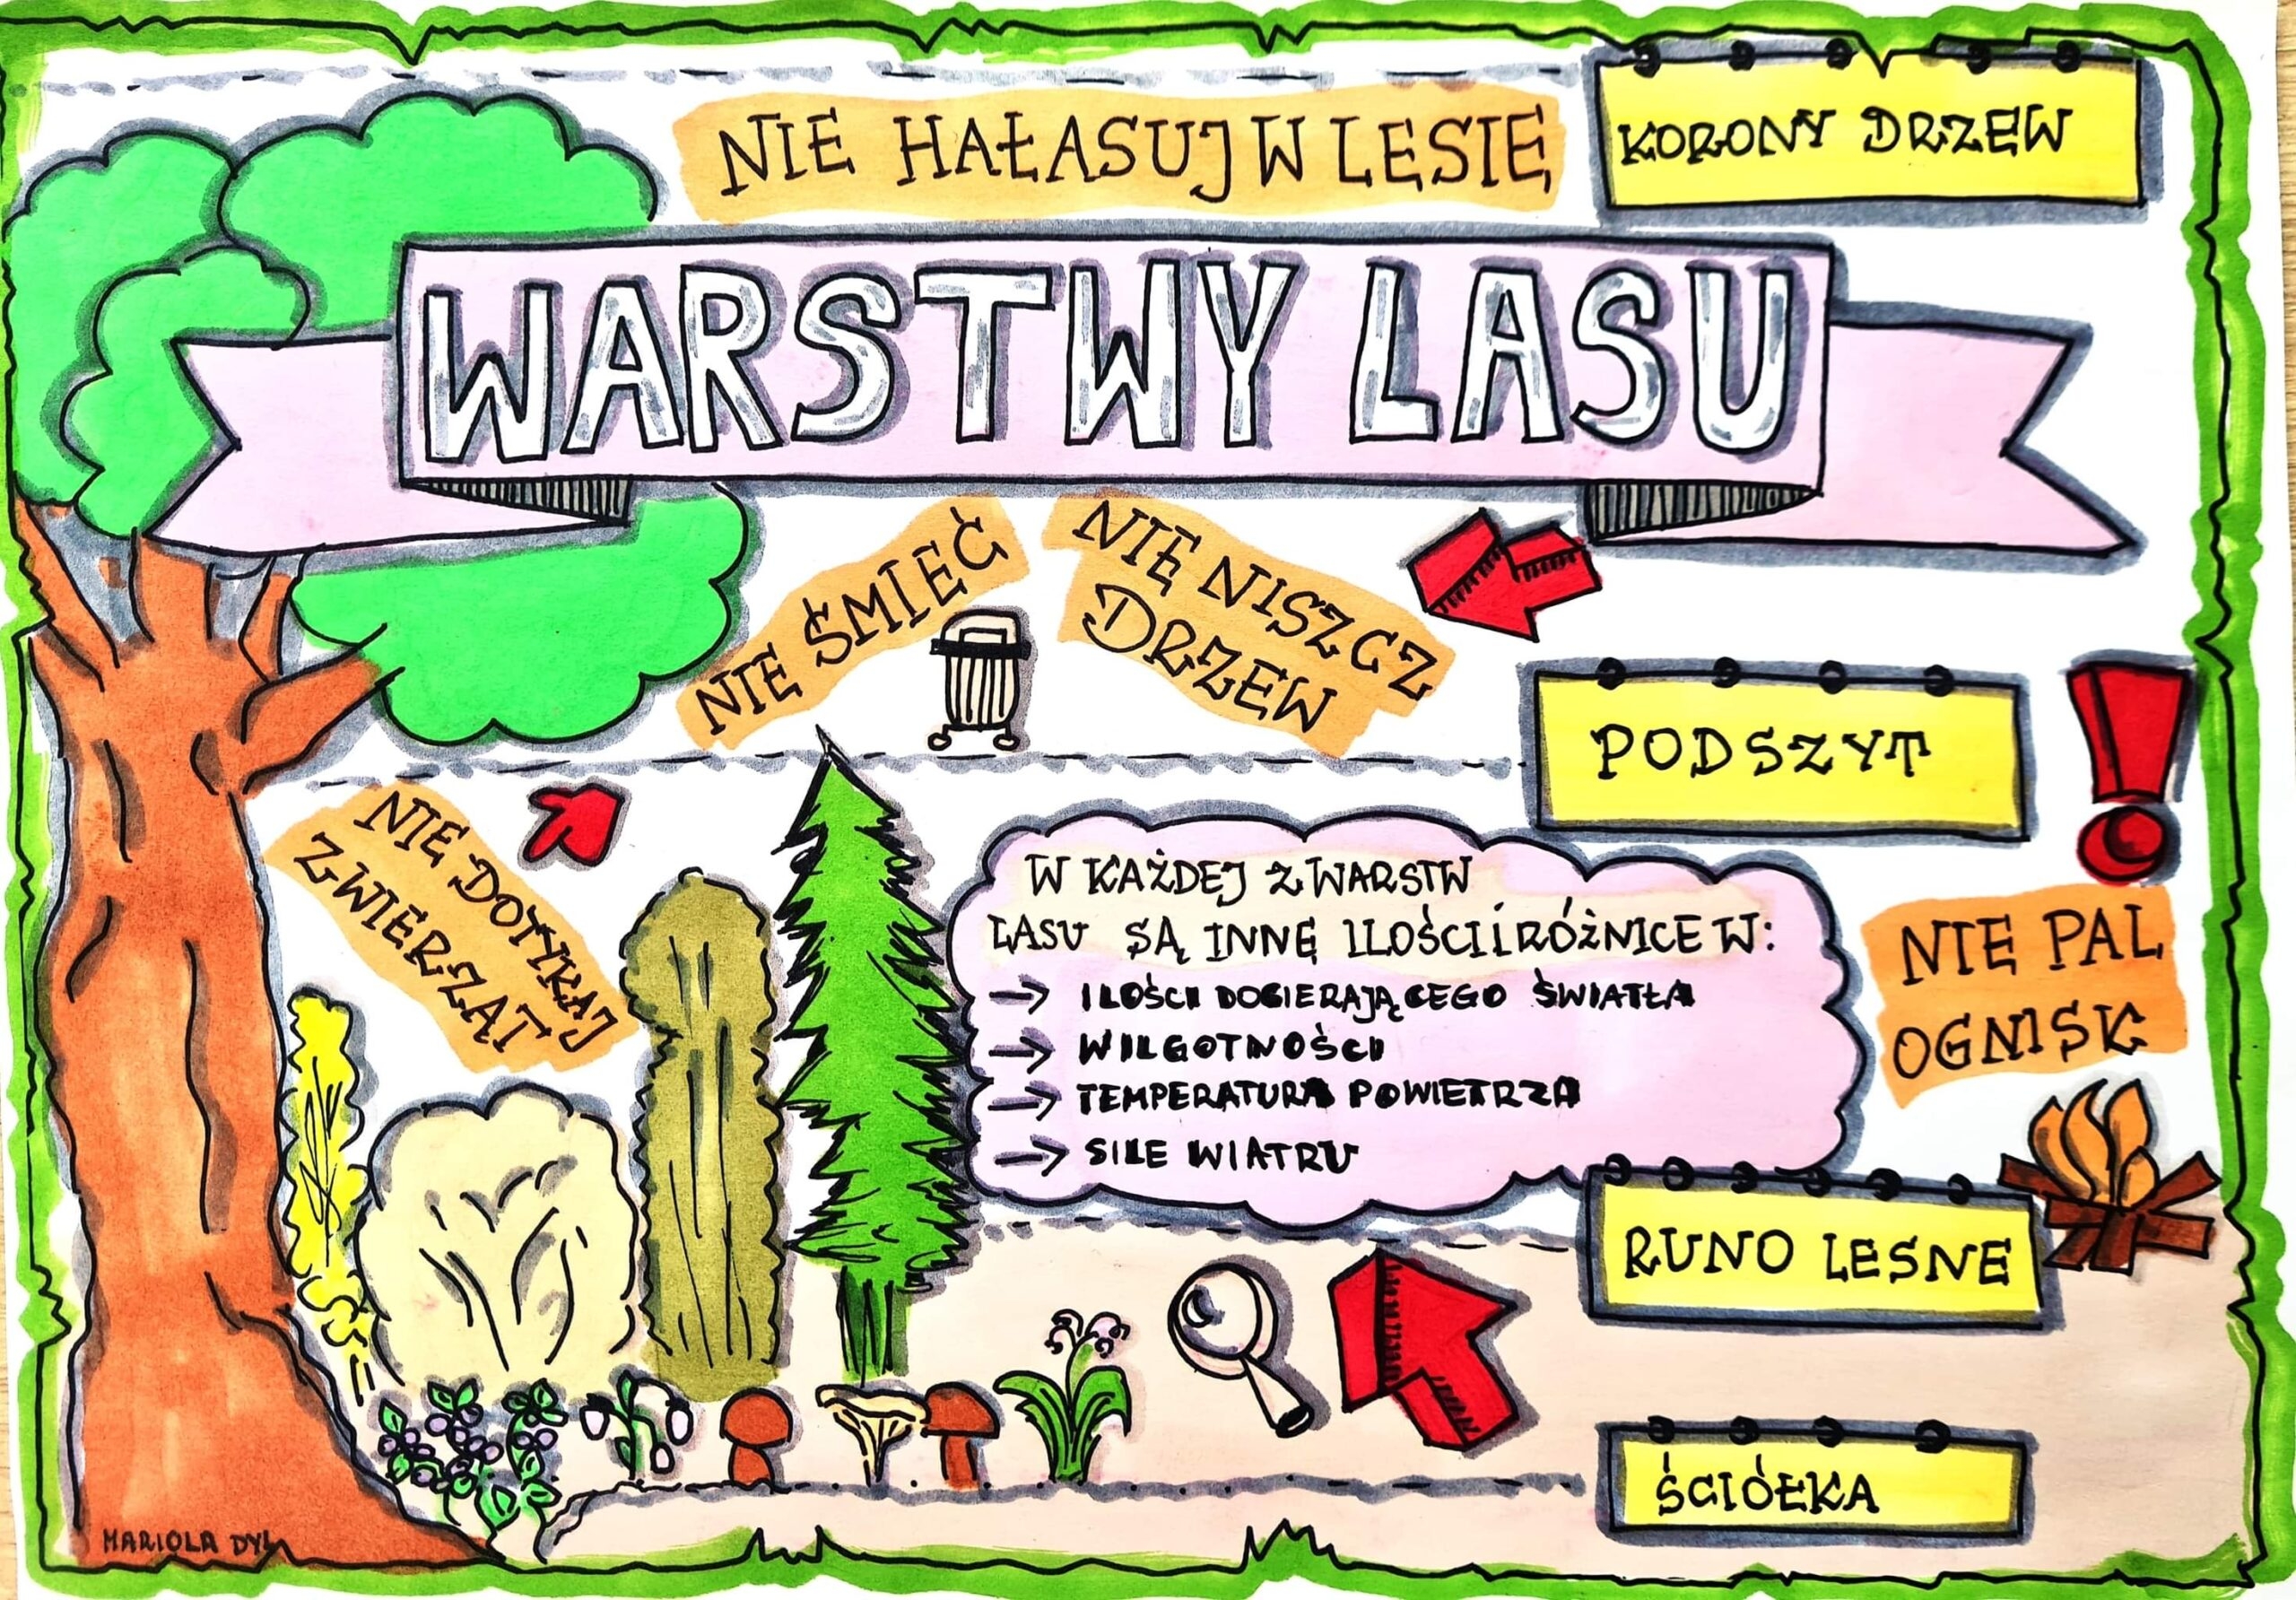 NIE HAŁASUJ W LESIE
KORONY DRZEW
WARSTWY LASU
NIE ŚMIEĆ
NIE NISZCZ
DRZEW
PODSZYT
NIE DOTYKAJ
ZWIERZĄT
W KAŻDEJ Z WARSTW
LASU SĄ INNE ILOŚCI I RÓŻNICE W:
→ ILOŚCI DOCIERAJĄCEGO ŚWIATŁA
→ WILGOTNOŚCI
→ TEMPERATURA POWIETRZA
→ SILE WIATRU
NIE PAL
OGNISK
RUNO LESNE
ŚCIÓŁKA
MARIOLA DYL